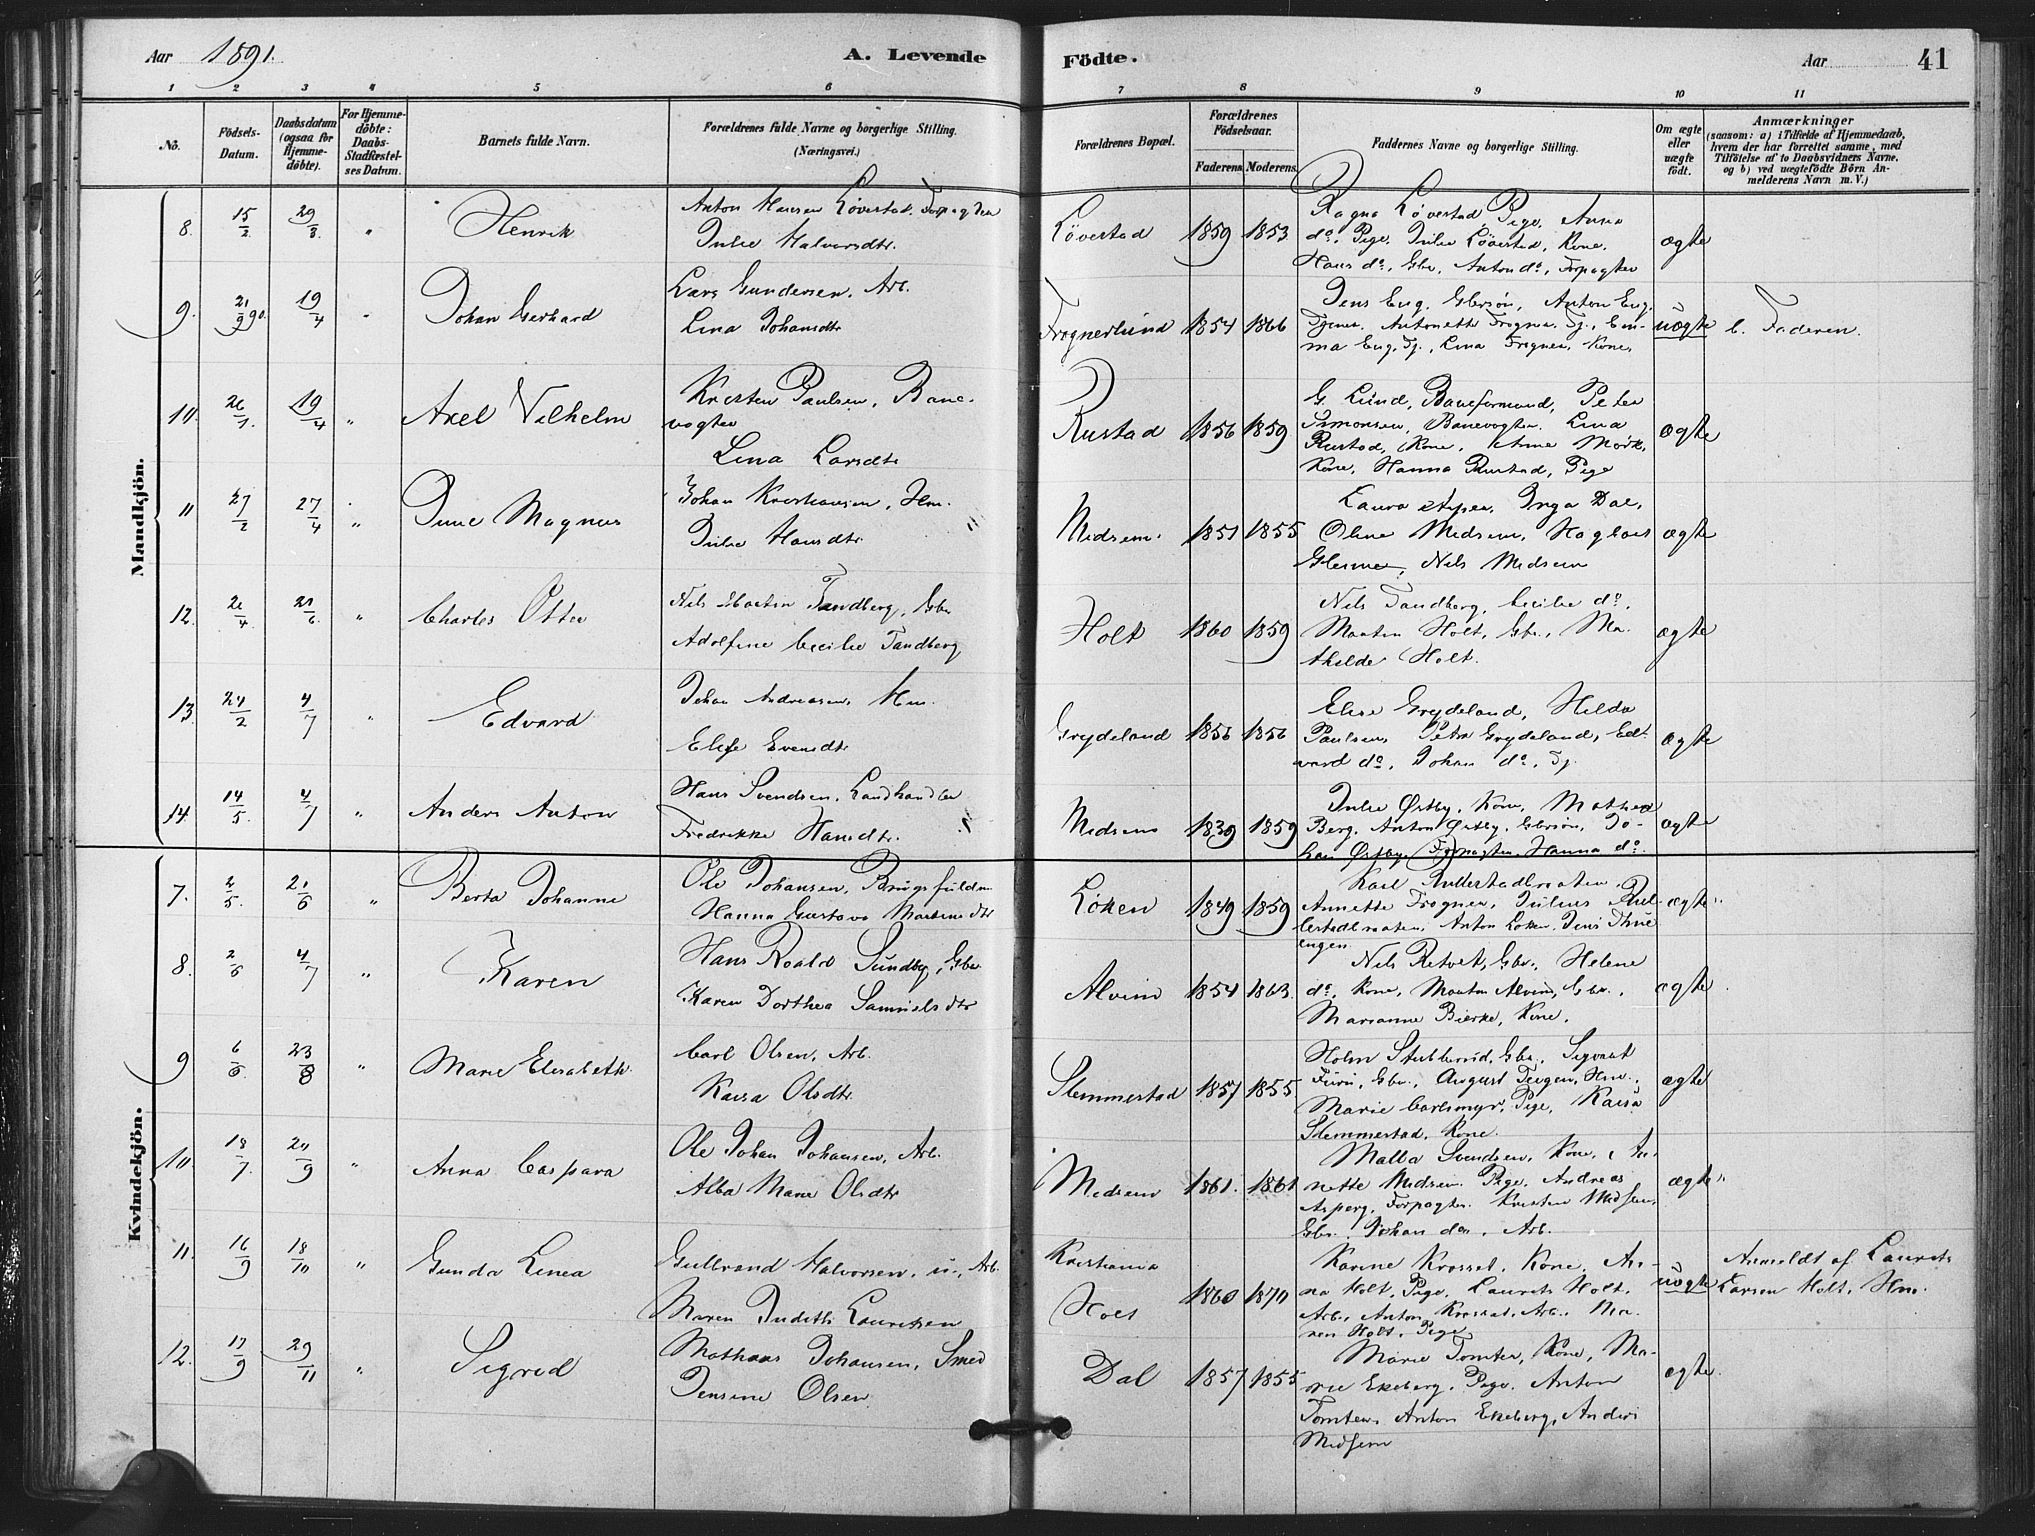 Aar 1891. A. Levende Födte. Aar 41
1 2 3 4 5 6 7 8 9 10 11
No.
Födsels-Datum.
Daabsdatum (ogsaa for Hjemme-döbte).
For Hjemme-döbte: Daabs-Stadfæstel-ses Datum.
Barnets fulde Navn.
Forældrenes fulde Navne og borgerlige Stilling. (Næringsvei.)
Forældrenes Bopæl.
Forældrenes Födselsaar.
Faderens Moderens
Faddernes Navne og borgerlige Stilling.
Om ægte eller uægte födt.
Anmærkninger
(saasom: a) i Tilfælde af Hjemmedaab,
hvem der har forrettet samme, med
Tilföielse af to Daabsvidners Navne.
og b) ved uægtefödte Börn An-
melderens Navn m. V.)
Mandkjön.
8. 15/2 29/3 " Henrik
Anton Hansen Løvestad. Forpagter
Julie Halvorsdtr.
Løvestad 1859 1853
Ragna Løvestad Pige, Anna
do, Pige. Julie Løvestad, Kone.
Hans do, Gbr, Anton do, Forpagter
ægte
9. 21/9 90. 19/4 " Johan Gerhard
Lars Gundersen, Arb.
Lina Johansdtr
Frognerlund 1854 1866
Jens Eng, Gbrsön, Anton Eng,
Antonette Frogner, Tj., Em-
ma Eng, Tj., Lina Frogner, Kone,
uægte b. Faderen.
10. 26/1. 19/4 " Axel Vilhelm
Kristen Paulsen, Bane-
vogter
Lina Larsdtr
Rustad 1856 1859
G. Lund, Baneformand, Peter
Simonsen, Banevogter. Lina
Rustad, Kone, Anna Mörk,
Kone, Hanna Rustad, Pige
ægte
11 27/2 27/4 " Magnus
Johan Kristiansen, Hm.
Julie Hansdtr.
Midsem. 1851 1855
Laura Asper, Inga Dal,
Oline Midsem,
Nils Midsem
ægte
12. 2/4 21/6 " Charles Otto
Nils Martin Tandberg, Gbr
Adolfine Cecilie Tandberg
Holt 1860 1859
Nils Tandberg, Cecilie do,
Martin Holt, Gbr., Ma-
thilde Holt.
ægte
13. 24/2 4/7 " Edvard
Johan Andreasen, Hm.
Elise Evensdtr
Grydeland 1856 1856
Elise Grydeland, Hilda
Paulsen, Petra Grydeland, Ed-
vard do, Johan do, Tj.
ægte
14. 14/5. 4/7 " Anders Anton
Hans Svendsen, Landhandler
Fredrikke Hansdtr.
Midsem 1839 1859
Julie Østby, Kone, Mathea
Berg, Anton Østby, Gbrsön, Jo-
han Østby, Forpagter, Hanna do
ægte
Kvindekjön.
7. 2/5. 21/6 " Berta Johanne
Ole Johansen, Brugsfuldm
Hanna Gustava Martinsdtr
Löken 1849 1859
Karl Rullestadbraaten,
Annette Frogner, Julius Rul-
lestadbraaten, Anton Löken, Jens Thue
engen
ægte
8. 2/6 4/7 " Karen
Hans Roald Sundby, Gbr
Karen Dorthea Samuelsdtr
Alvim 1854 1863.
Nils Retvet, Gbr., Helene
do, Kone, Martin Alvim, Gbr.,
Marianne Bierke, Kone.
ægte
9 6/6 23/8 " Marie Elisabeth.
Carl Olsen, Arb.
Kaisa Olsdtr.
Slemmestad 1857 1855
Holm Stubberud, Gbr., Sigvart
Furu, Gbr., August Teigen, Hm.,
Marie Carlsmyr, Pige, Kaisa
Slemmestad, Kone.
ægte
10. 18/7. 20/9 " Anna Caspara
Ole Johan Johansen, Arb.
Alba Marie Olsdtr
Midsem 1861. 1861
Malba Svendsen, Kone, An-
nette Midsem. Pige, Andreas
Asperg, Forpagter. Kristen Midsem,
Gbr. Johan do, Arb.
ægte
11. 16/9 18/10 " Gunda Linea
Gulbrand Halvorsen, u., Arb.
Maren Judith Lauritsen
Kristiania
Holt 1860 1870
Karine Krosset, Kone, An-
na Holt, Pige, Laurits Holt,
Arb., Anton Krosset, Arb., Ma-
ren Holt, Pige
uægte
Anmeldt af Laurits
Larsen Holt, Hm.
12. 17/9 29/11 " Sigrid
Mathias Johansen, Smed
Jensine Olsen
Dal 1857 1855
Marie Tomter, Kone, Ma-
rie Ekeberg, Pige, Anton
Tomter, Anton Ekeberg, Anders
Midsem
ægte